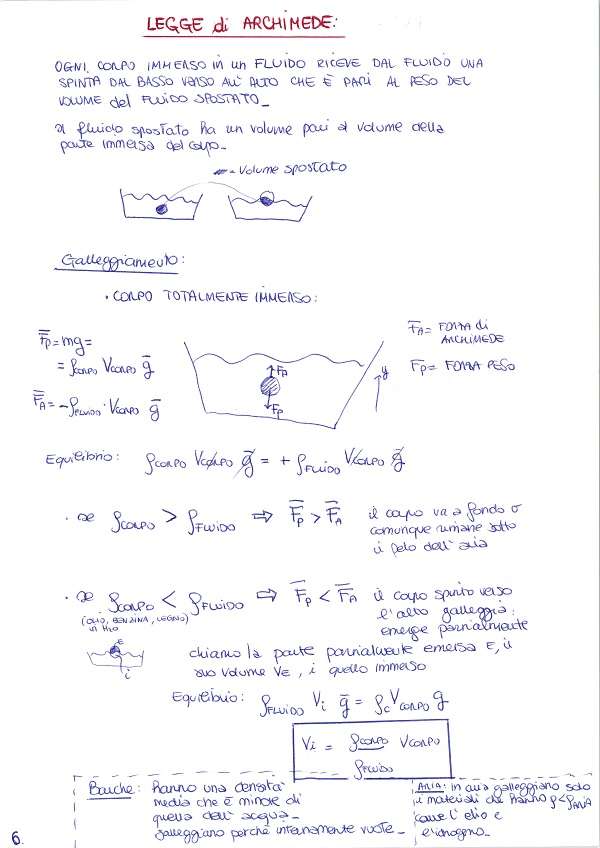 LEGGE di ARCHIMEDE:
OGNI CORPO IMMERSO in un FLUIDO RICEVE DAL FLUIDO UNA
SPINTA DAL BASSO VERSO ALL'ALTO CHE È PARI AL PESO DEL
VOLUME del FLUIDO SPOSTATO_
Il fluido spostato ha un volume pari al volume della
parte immersa del corpo_
= Volume SPOSTATO
Galleggiamento:
• CORPO TOTALMENTE IMMERSO:
F̄p = mg =
= ρCORPO VCORPO ḡ
F̄A = -ρFLUIDO · VCORPO ḡ
FP
FP
y
F̄A = FORZA di
ARCHIMEDE
F̄p = FORZA PESO
Equilibrio: ρCORPO VCORPO ḡ = + ρFLUIDO VCORPO ḡ
• se ρCORPO > ρFLUIDO ⇒ F̄p > F̄A il corpo va a fondo o
comunque rimane sotto
il pelo dell'aria
• se ρCORPO < ρFLUIDO ⇒ F̄p < F̄A il corpo spinto verso
(OLIO, BENZINA, LEGNO)
in H2O
l'alto galleggia:
emerge parzialmente
E
i
chiamo la parte parzialmente emersa E, il
suo volume VE, i quello immerso
Equilibrio: ρFLUIDO Vi ḡ = ρC VCORPO g
Vi = ρCORPO VCORPO
ρFLUIDO
Barche: hanno una densità
media che è minore di
quella dell'acqua_
galleggiano perché internamente vuote_
ARIA: in aria galleggiano solo
i materiali che hanno ρ<ρARIA
come l'elio e
l'idrogeno_
6.